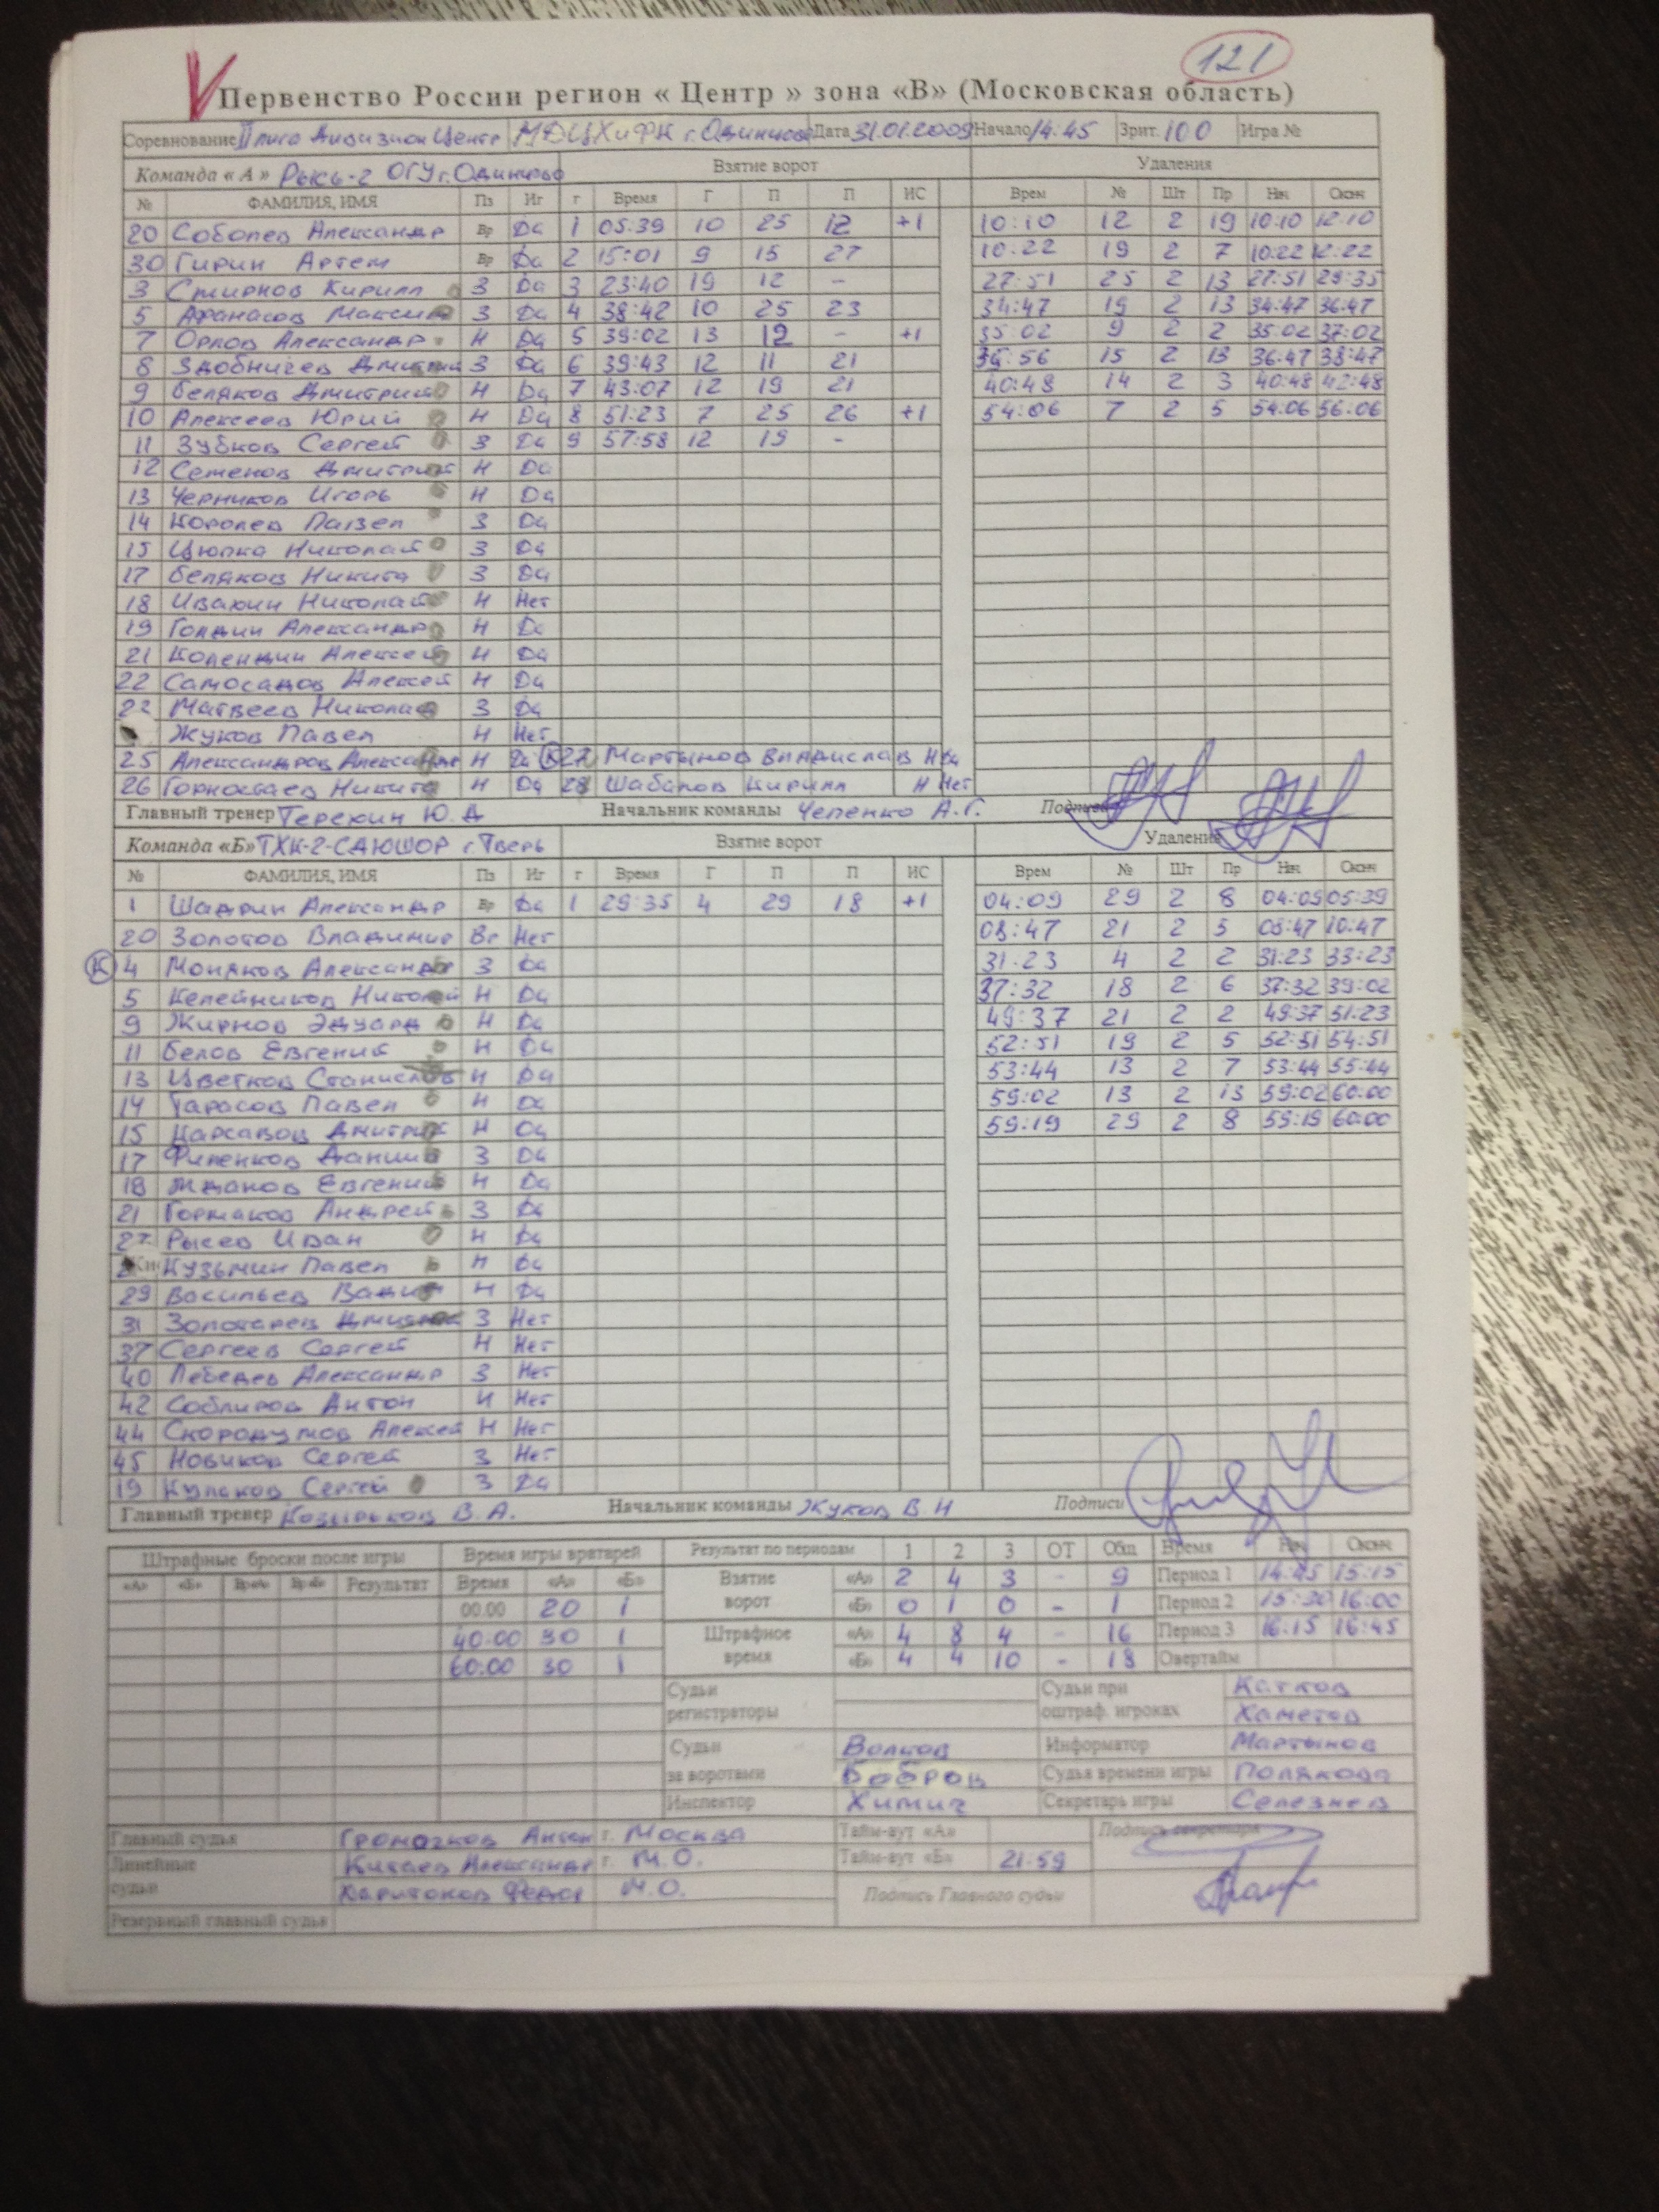 121
Первенство России регион « Центр » зона «В» (Московская область)
Соревнование II лига Дивизион Центр МДЦХиФК г. Одинцово Дата 31.01.2009 Начало 14:45 Зрит. 100 Игра №
Команда « А » Рысь-2 ОГУ г. Одинцово Взятие ворот Удаления
№ ФАМИЛИЯ, ИМЯ Пз Иг г Время Г П П ИС Врем № Шт Пр Нач Оконч
20 Соболев Александр Вр Да 1 05:39 10 25 12 +1 10:10 12 2 19 10:10 12:10
30 Гирин Артем Вр Да 2 15:01 9 15 27 10:22 19 2 7 10:22 12:22
3 Смирнов Кирилл З Да 3 23:40 19 12 - 27:51 25 2 13 27:51 29:35
5 Афанасов Максим З Да 4 38:42 10 25 23 34:47 19 2 13 34:47 36:47
7 Орлов Александр Н Да 5 39:02 13 12 - +1 35:02 9 2 2 35:02 37:02
8 Здобничев Дмитрий З Да 6 39:43 12 11 21 36:56 15 2 13 36:47 38:47
9 Беляков Дмитрий Н Да 7 43:07 12 19 21 40:48 14 2 3 40:48 42:48
10 Алексеев Юрий Н Да 8 51:23 7 25 26 +1 54:06 7 2 5 54:06 56:06
11 Зубков Сергей З Да 9 57:58 12 19 -
12 Семенов Дмитрий Н Да
13 Черников Игорь Н Да
14 Королев Павел З Да
15 Цюпка Николай З Да
17 Беляков Никита З Да
18 Ивахин Николай Н Нет
19 Голдин Александр Н Да
21 Колендин Алексей Н Да
22 Самосадов Алексей Н Да
Матвеев Николай З Да
Жуков Павел Н Нет
25 Александров Александр Н Да К 27 Мартынов Владислав Н Да
26 Горностаев Никита Н Да 28 Шабалов Кирилл Н Нет
Главный тренер Терехин Ю. А Начальник команды Чепенко А.Г. Подписи
Команда «Б» ТХК-2-САЮШОР г. Тверь Взятие ворот Удаления
№ ФАМИЛИЯ, ИМЯ Пз Иг г Время Г П П ИС Врем № Шт Пр Нач Оконч
1 Шадрин Александр Вр Да 1 29:35 4 29 18 +1 04:09 29 2 8 04:09 05:39
20 Золотов Владимир Вр Нет 08:47 21 2 5 08:47 10:47
К 4 Моняков Александр З Да 31:23 4 2 2 31:23 33:23
5 Келейников Николай Н Да 37:32 18 2 6 37:32 39:02
9 Жирнов Эдуард Н Да 49:37 21 2 2 49:37 51:23
11 Белов Евгений Н Да 52:51 19 2 5 52:51 54:51
13 Цветков Станислав Н Да 53:44 13 2 7 53:44 55:44
14 Тарасов Павел Н Да 59:02 13 2 13 59:02 60:00
15 Карсавов Дмитрий Н Да 59:19 29 2 8 59:19 60:00
17 Филенков Даниил З Да
18 Жданов Евгений Н Да
21 Гормаков Андрей З Да
Рысев Иван Н Да
Кузьмин Павел Н Да
29 Васильев Вадим Н Да
31 Золотарев Дмитрий З Нет
37 Сергеев Сергей Н Нет
40 Лебедев Александр З Нет
42 Соблиров Антон Н Нет
44 Скородумов Алексей Н Нет
45 Новиков Сергей З Нет
19 Кулаков Сергей З Да
Главный тренер Козырьков В.А. Начальник команды Жуков В.Н Подписи
Штрафные броски после игры Время игры вратарей Результат по периодам 1 2 3 ОТ Общ Время Нач Оконч
«А» «Б» Вр«А» Вр«Б» Результат Время «А» «Б» Взятие ворот «А» 2 4 3 - 9 Период 1 14:45 15:15
00.00 20 1 «Б» 0 1 0 - 1 Период 2 15:30 16:00
40:00 30 1 Штрафное время «А» 4 8 4 - 16 Период 3 16:15 16:45
60:00 30 1 «Б» 4 4 10 - 18 Овертайм
Судьи регистраторы Судьи при оштраф. игроках Катков
Хаметов
Судьи за воротами Волков Информатор Мартынов
Бобров Судья времени игры Полякова
Инспектор Химич Секретарь игры Селезнев
Главный судья Громочков Антон г. Москва Тайм-аут «А» Подпись секретаря
Линейные судьи Китаев Александр г. М.О. Тайм-аут «Б» 21:59
Харитонов Федор М.О. Подпись Главного судьи
Резервный главный судья